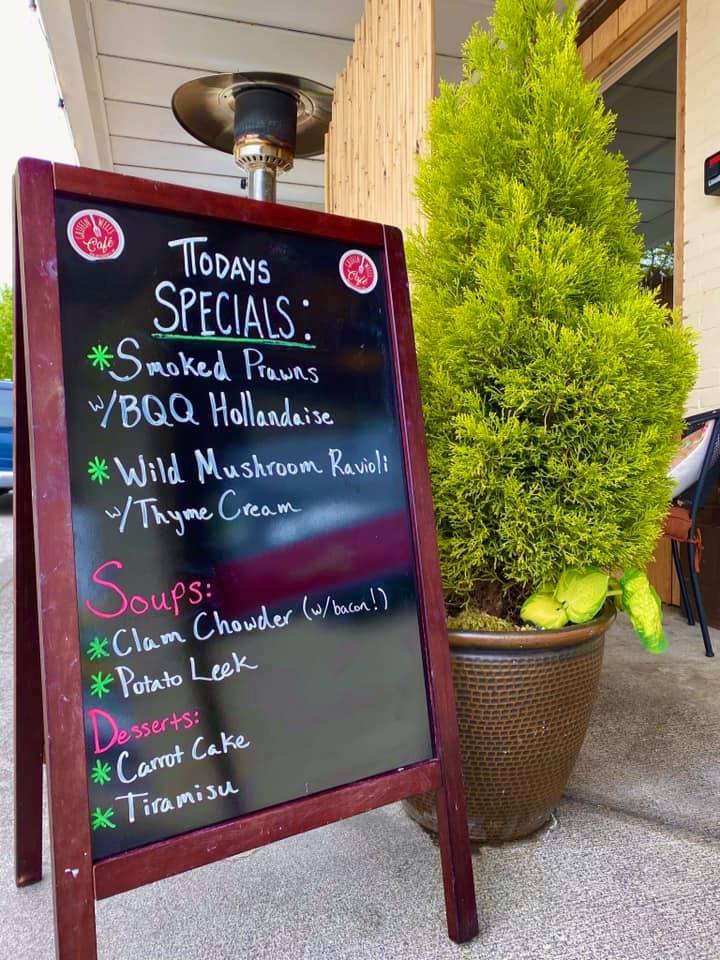 Café
TODAYS
SPECIALS:
* Smoked Prawns
w/BQQ Hollandaise
* Wild Mushroom Ravioli
w/Thyme Cream
Soups:
* Clam Chowder (w/bacon!)
* Potato Leek
Desserts:
* Carrot Cake
* Tiramisu